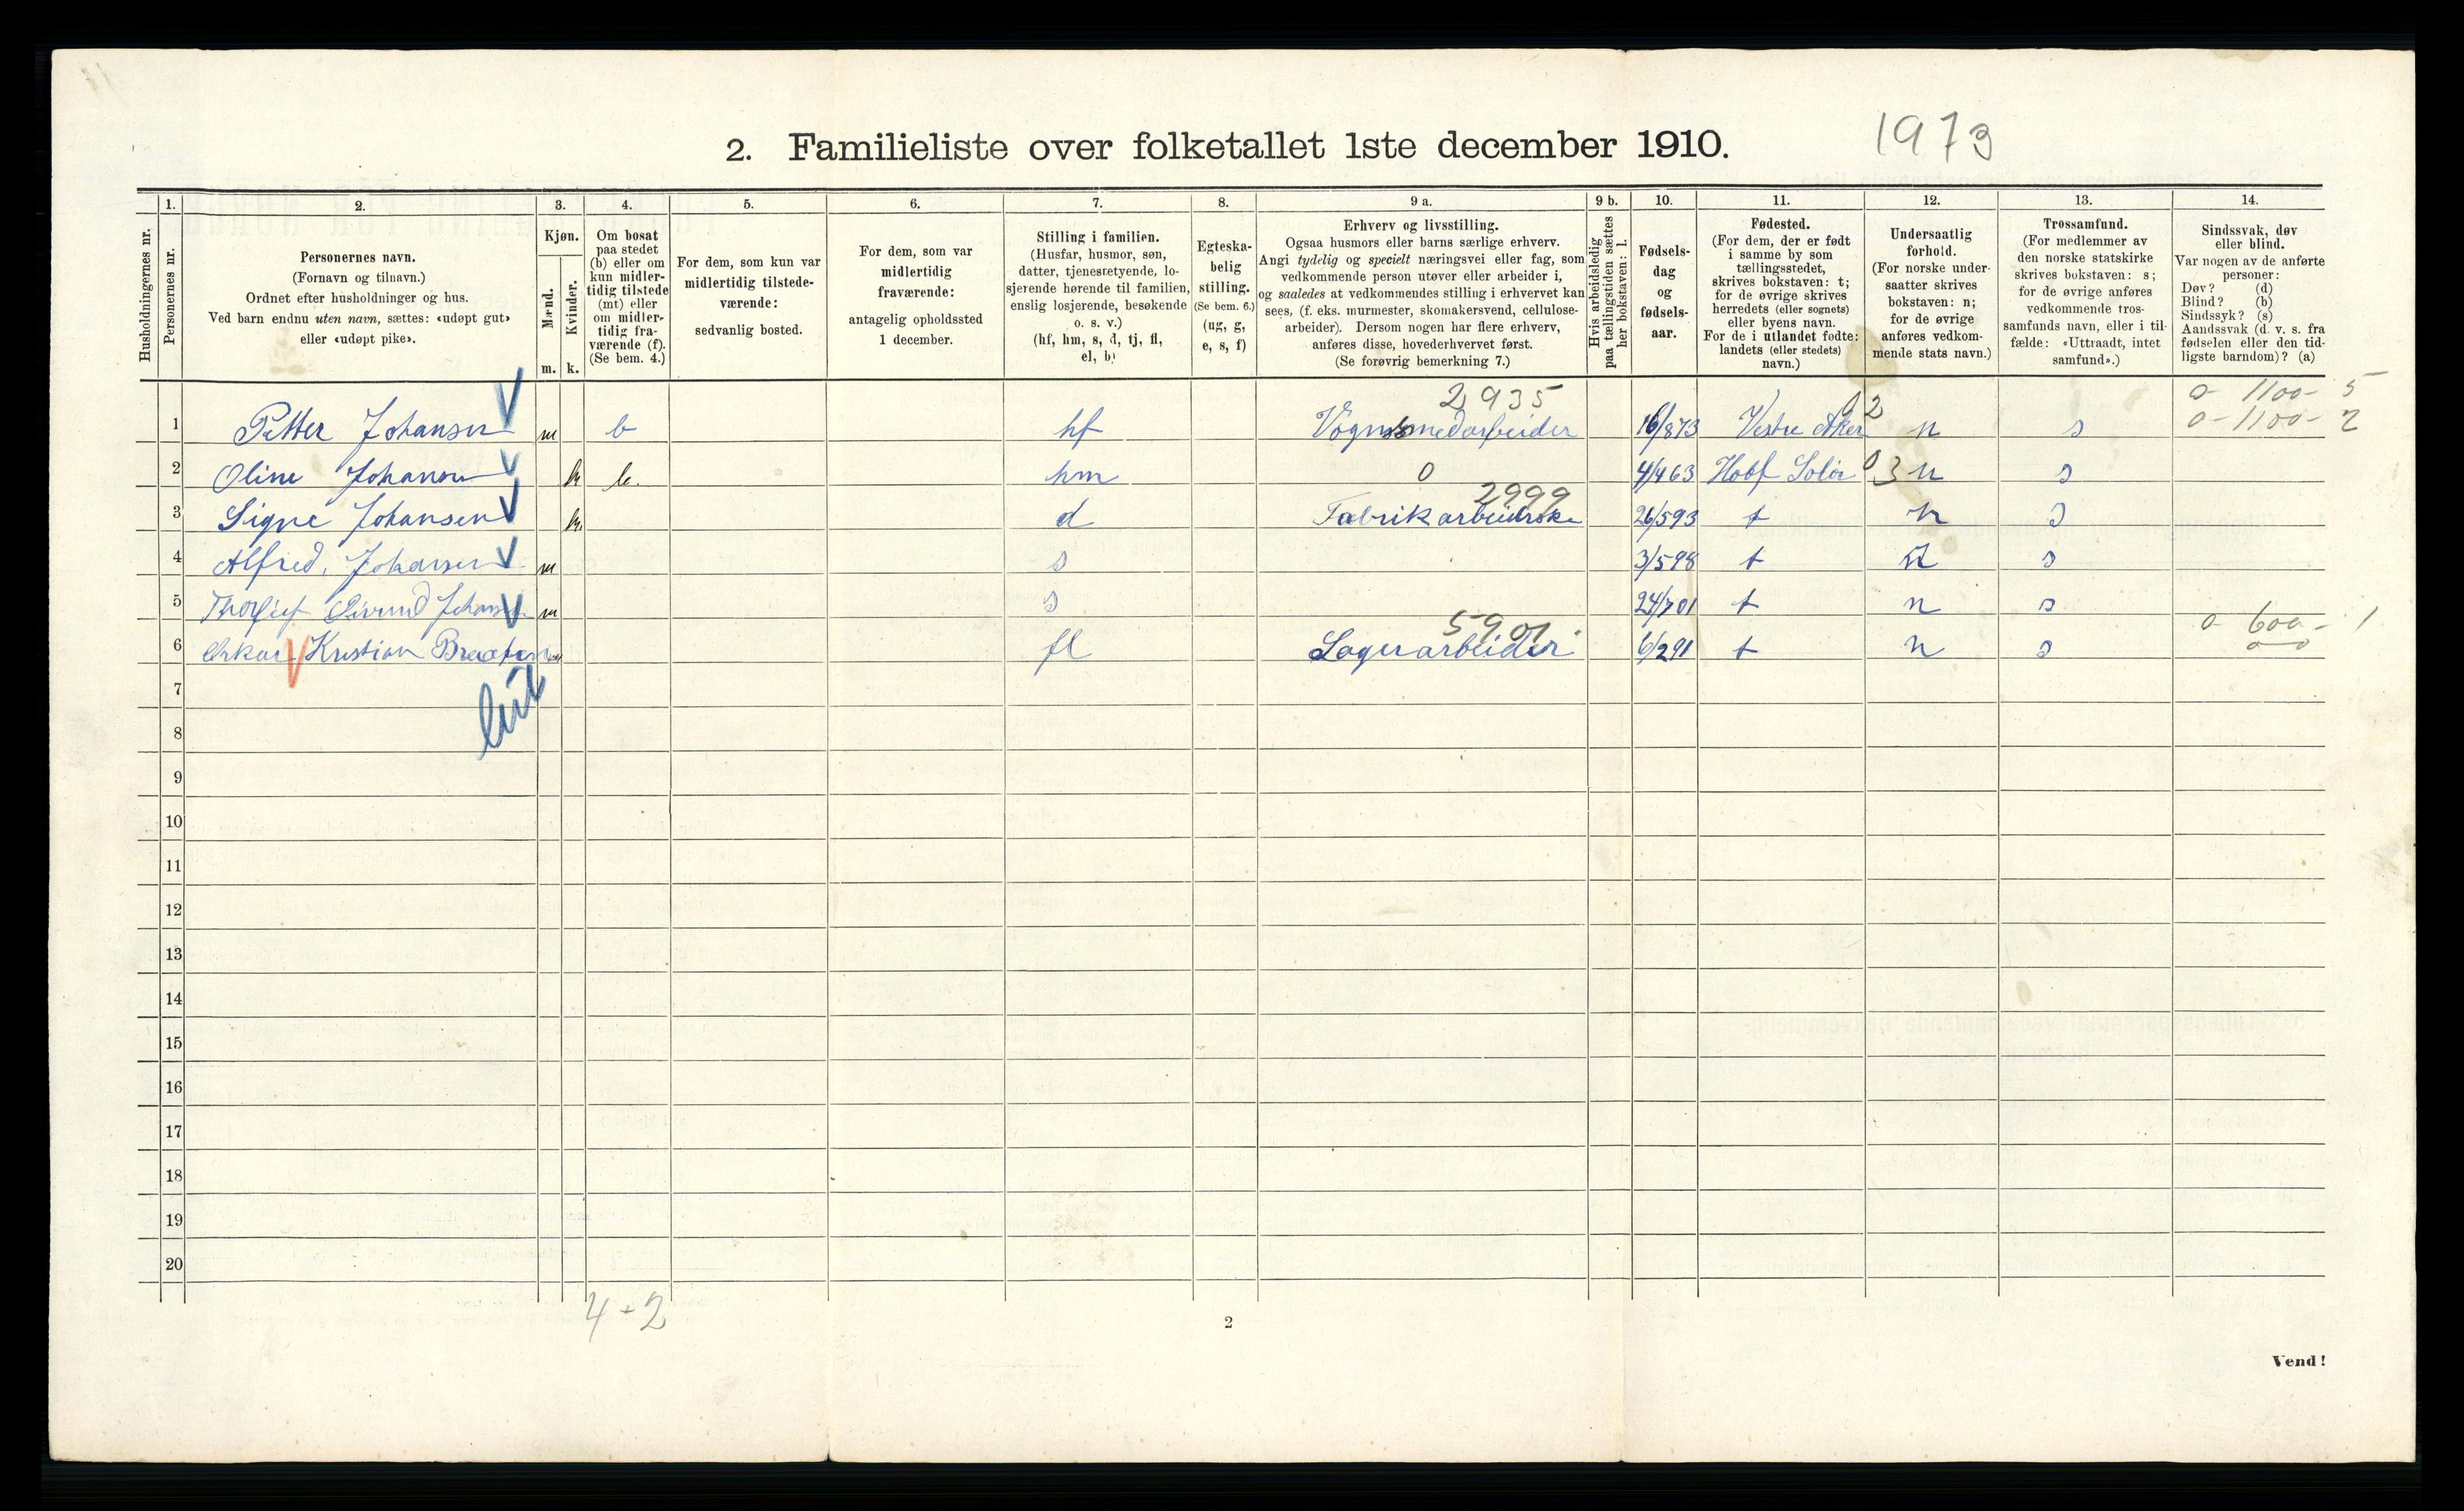 2. Familieliste over folketallet 1ste december 1910. 1973
1. 2. 3. 4. 5. 6. 7. 8. 9 a. 9 b. 10. 11. 12. 13. 14.
Husholdningernes nr.
Personernes nr.
Personernes navn.
(Fornavn og tilnavn.)
Ordnet efter husholdninger og hus.
Ved barn endnu uten navn, sættes: «udøpt gut»
eller «udøpt pike».
Kjøn.
Mænd.
Kvinder.
m. k.
Om bosat
paa stedet
(b) eller om
kun midler-
tidig tilstede
(mt) eller
om midler-
tidig fra-
værende (f).
(Se bem. 4.)
For dem, som kun var
midlertidig tilstede-
værende:
sedvanlig bosted.
For dem, som var
midlertidig
fraværende:
antagelig opholdssted
1 december.
Stilling i familien.
(Husfar, husmor, søn,
datter, tjenestetyende, lo-
sjerende hørende til familien,
enslig losjerende, besøkende
o. s. v.)
(hf, hm, s, d, tj, fl,
el, b)
Egteska-
belig
stilling.
(Se bem. 6.)
(ug, g,
e, s, f)
Erhverv og livsstilling.
Ogsaa husmors eller barns særlige erhverv.
Angi tydelig og specielt næringsvei eller fag, som
vedkommende person utøver eller arbeider i,
og saaledes at vedkommendes stilling i erhvervet kan
sees, (f. eks. murmester, skomakersvend, cellulose-
arbeider). Dersom nogen har flere erhverv,
anføres disse, hovederhvervet først.
(Se forøvrig bemerkning 7.)
Hvis arbeidsledig
paa tællingstiden sættes
her bokstaven: l.
Fødsels-
dag
og
fødsels-
aar.
Fødested.
(For dem, der er født
i samme by som
tællingsstedet,
skrives bokstaven: t;
for de øvrige skrives
herredets (eller sognets)
eller byens navn.
For de i utlandet fødte:
landets (eller stedets)
navn.)
Undersaatlig
forhold.
(For norske under-
saatter skrives
bokstaven: n;
for de øvrige
anføres vedkom-
mende stats navn.)
Trossamfund.
(For medlemmer av
den norske statskirke
skrives bokstaven: s;
for de øvrige anføres
vedkommende tros-
samfunds navn, eller i til-
fælde: «Uttraadt, intet
samfund».)
Sindssvak, døv
eller blind.
Var nogen av de anførte
personer:
Døv? (d)
Blind? (b)
Sindssyk? (s)
Aandssvak (d. v. s. fra
fødselen eller den tid-
ligste barndom)? (a)
2935 0 - 1100 - 5
1 Petter Johansen m b hf Vognsmedarbeider 16/873 Vestre Aker 02 n s 0 - 1100 - 2
2 Oline Johansen k b. hm 0 4/463 Hoof Solør 03 n s
2999
3 Signe Johansen k. d Fabrikarbeiderske 26/593 t n s
4 Alfred Johansen m s 3/598 t n s
5 Thorleif Eivind Johansen m s 24/701 t n s
5901 0 600 - 1
6 Oskar Kristian Braaten m fl Lagerarbeider 6/291 t n s
7
8
9
10
11
12
13
14
15
16
17
18
19
20
4 + 2
2
Vend!